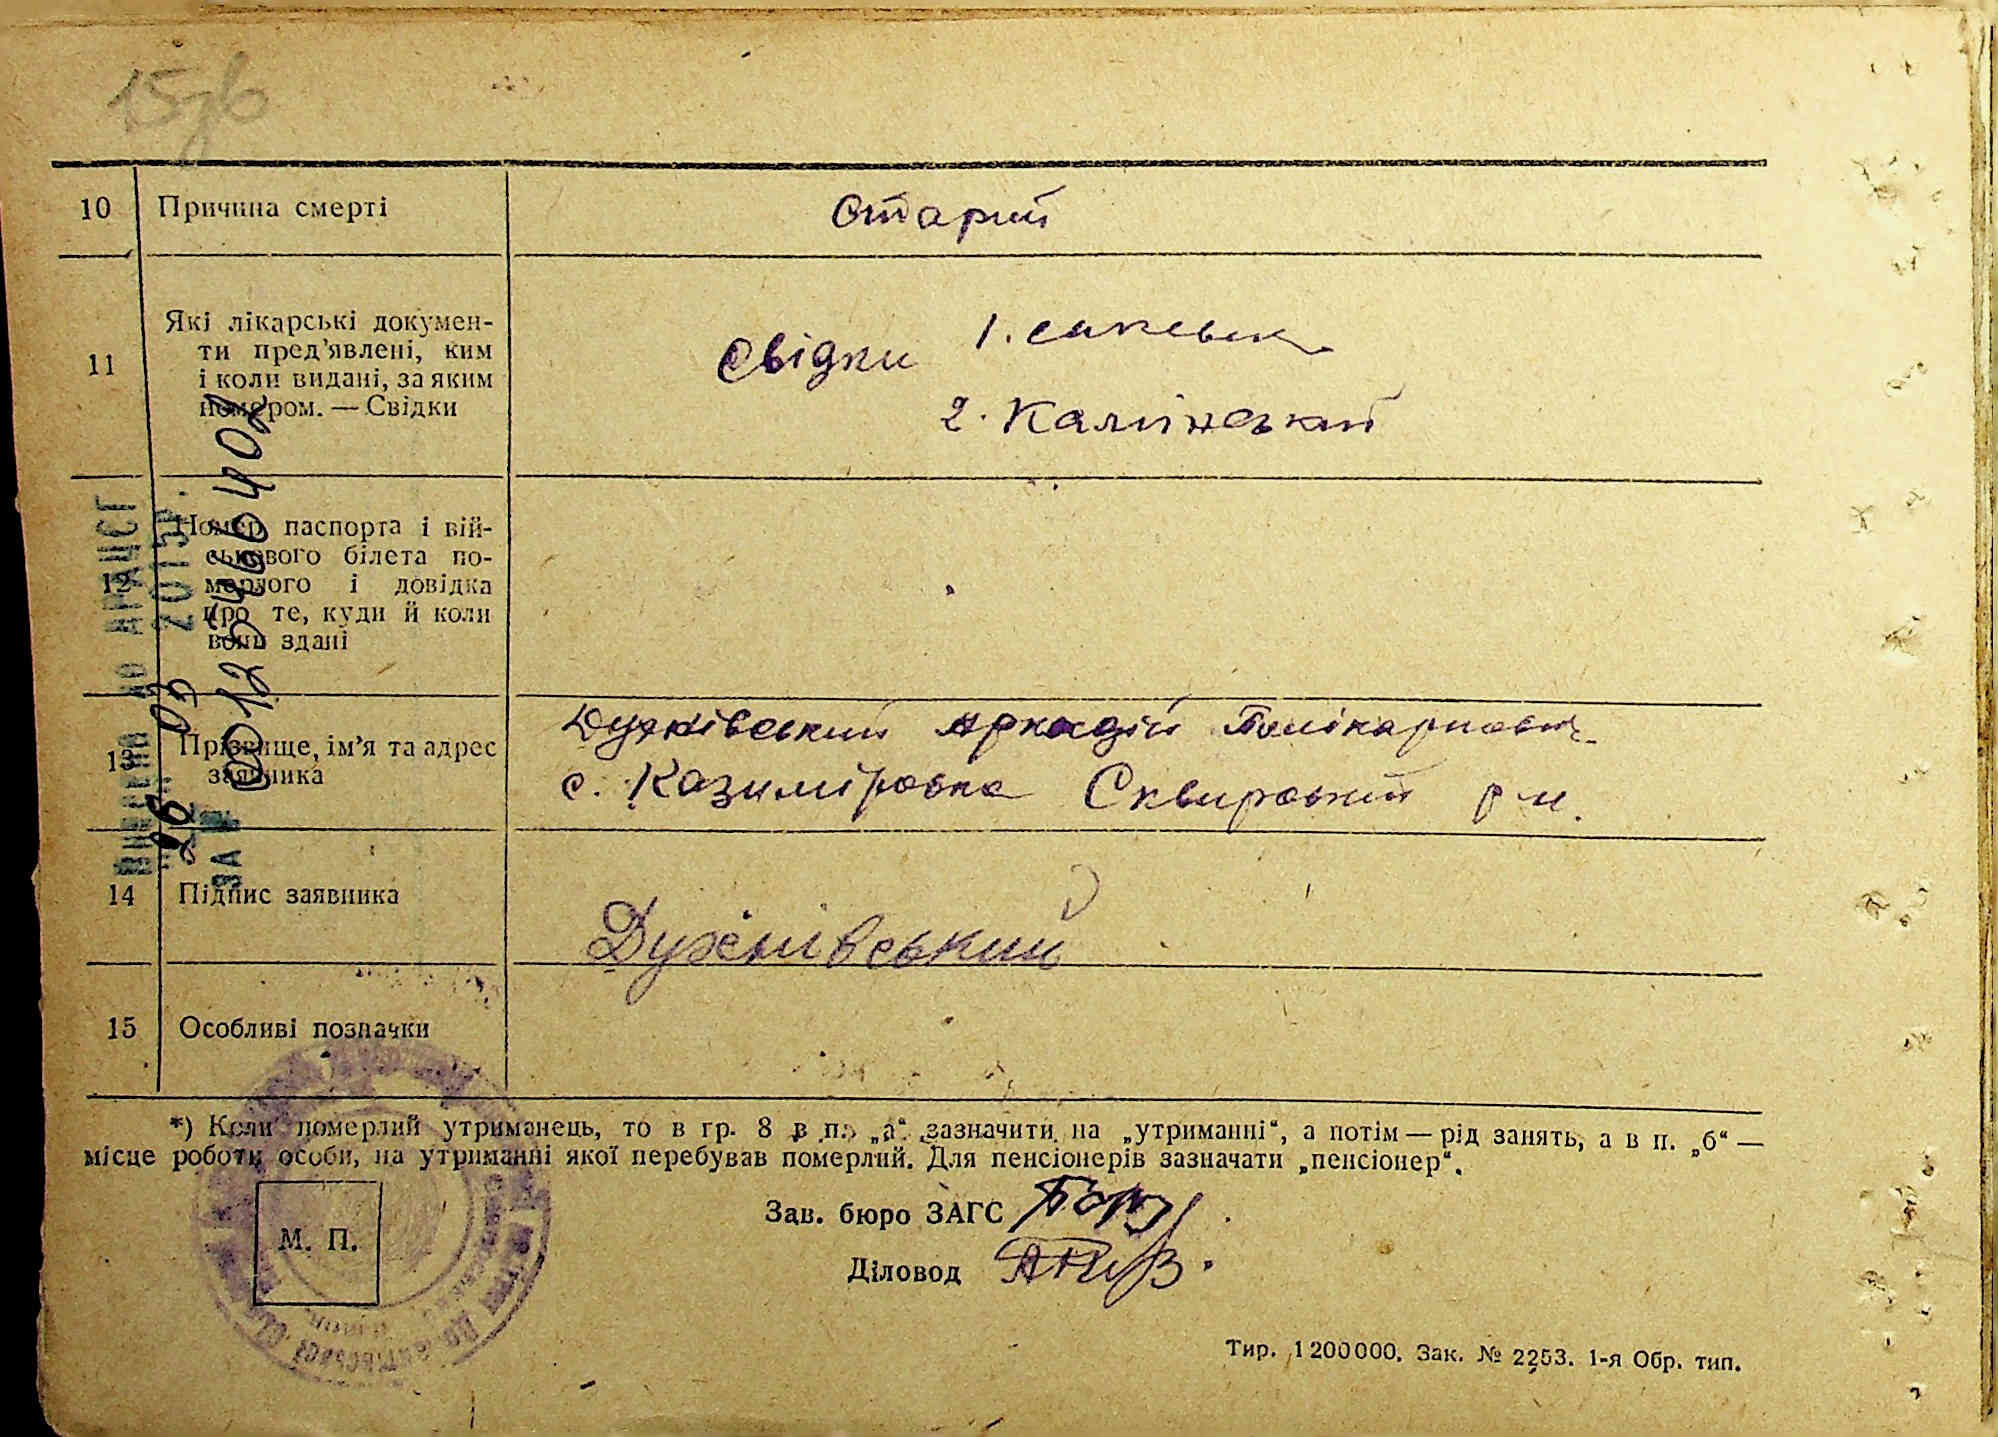 10 Причина смерті Старий
11 Які лікарські докумен-
ти пред'явлені, ким
і коли видані, за яким
номером. — Свідки
Свідки 1.
2. Калінський
12 Номер паспорта і вій-
ськового білета по-
мерлого і довідка
про те, куди й коли
вони здані
13 Прізвище, ім'я та адрес
заявника
Аркадій Полікарпович
с. Казиміровка Сквирський р-н.
14 Підпис заявника
15 Особливі позначки
*) Коли померлий утриманець, то в гр. 8 в п. „а“ зазначити на „утриманні“, а потім — рід занять, а в п. „б“ —
місце роботи особи, на утриманні якої перебував померлий. Для пенсіонерів зазначати „пенсіонер“.
М. П.
Зав. бюро ЗАГС
Діловод
Тир. 1 200 000. Зак. № 2253. 1-я Обр. тип.